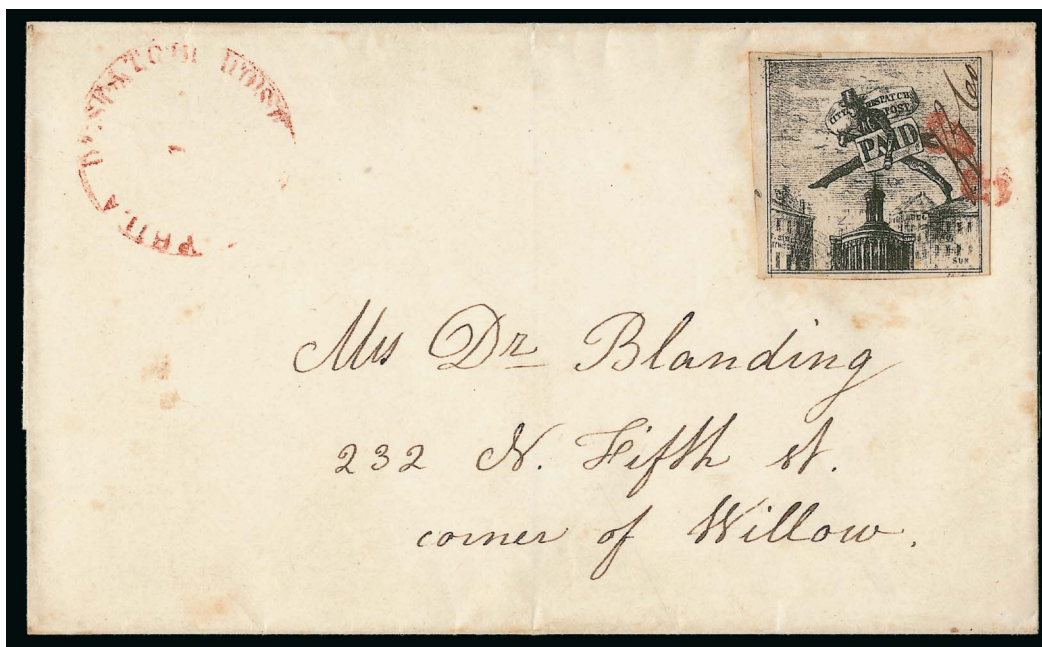 PHILA DESPATCH POST
CITY DESPATCH
POST
PAID
SUN
Mrs Dr Blanding
232 N. Fifth st.
corner of Willow.